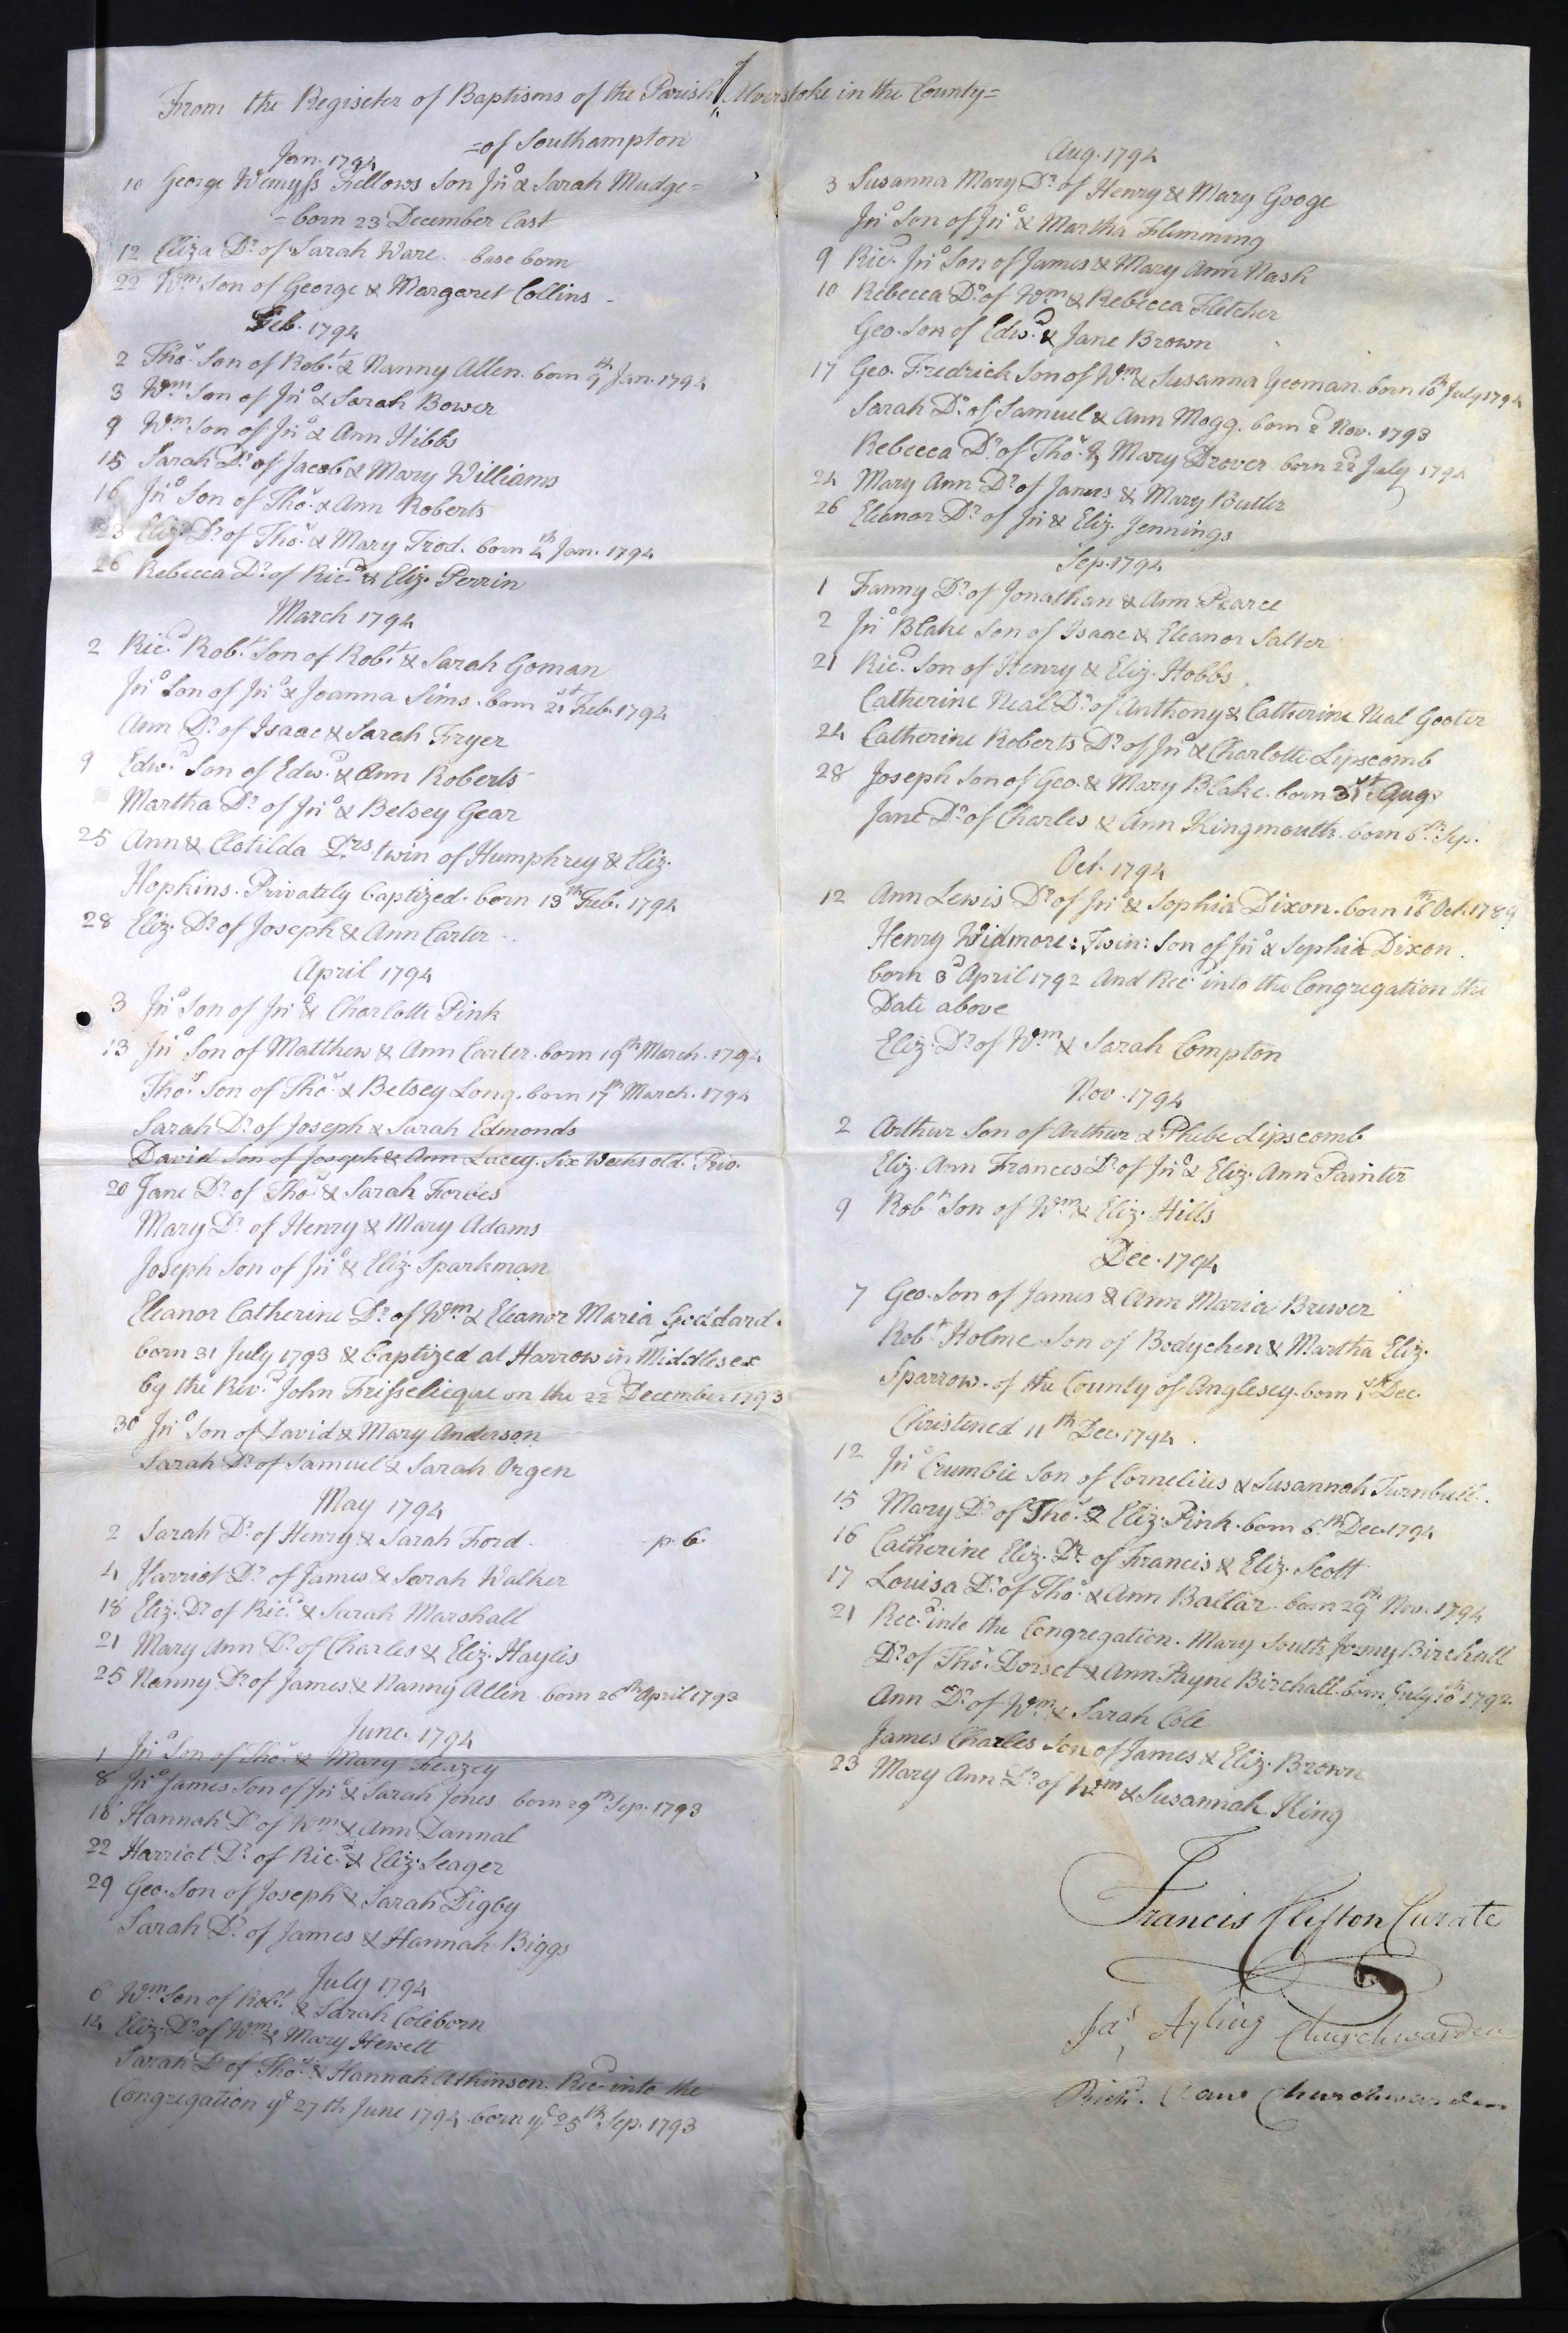 From the Regiseter of Baptisms of the Parish of Alverstoke in the County=
=of Southampton
Jan. 1794
10 George Wemyss Fellows Son Jno & Sarah Mudge=
=born 23 December last
12 Eliza Dr of Sarah Ware. base born
22 Wm Son of George & Margaret Collins -
Feb. 1794
2 Thos Son of Robt & Nanny Allen. born 9th Jan. 1794
3 Wm Son of Jno & Sarah Bower
9 Wm Son of Jno & Ann Hibbs
15 Sarah Dr of Jacob & Mary Williams
16 Jno Son of Thos & Ann Roberts
23 Eliz. Dr of Thos & Mary Trod. born 4th Jan. 1794
26 Rebecca Dr of Ricd & Eliz. Perrin
March 1794
2 Ricd Robt Son of Robt & Sarah Goman
Jno Son of Jno & Joanna Sims. born 21st Feb. 1794
Ann Dr of Isaac & Sarah Fryer
9 Edwd Son of Edwd & Ann Roberts
Martha Dr of Jno & Betsey Gear
25 Ann & Clotilda Drs twin of Humphrey & Eliz.
Hopkins. Privately baptized. born 13th Feb. 1794
28 Eliz. Dr of Joseph & Ann Carter
April 1794
3 Jno Son of Jno & Charlotte Pink
13 Jno Son of Matthew & Ann Carter. born 19th March. 1794
Thos Son of Thos & Betsey Long. born 17th March. 1794
Sarah Dr of Joseph & Sarah Edmonds
David Son of Joseph & Ann Lacey. Six Weeks old. Priv.
20 Jane Dr of Thos & Sarah Forbes
Mary Dr of Henry & Mary Adams
Joseph Son of Jno & Eliz. Sparkman
Eleanor Catherine Dr of Wm & Eleanor Maria Goddard.
born 31 July 1793 & baptized at Harrow in Middlesex
by the Revd John Frisselicque on the 22d December 1793
30 Jno Son of David & Mary Anderson
Sarah Dr of Samuel & Sarah Orgen
May 1794
2 Sarah Dr of Henry & Sarah Ford. p. b.
4 Harriot Dr of James & Sarah Walker
18 Eliz. Dr of Ricd & Sarah Marshall
21 Mary Ann Dr of Charles & Eliz. Hayles
25 Nanny Dr of James & Nanny Allin. born 26th April 1793
June. 1794
1 Jno Son of Thos & Mary Feazey
8 Jno James Son of Jno & Sarah Jones born 29th Sep. 1793
18 Hannah Dr of Wm & Ann Dannal
22 Harriot Dr of Ricd & Eliz. Seager
29 Geo. Son of Joseph & Sarah Digby
Sarah Dr of James & Hannah Biggs
July 1794
6 Wm Son of Robt & Sarah Coleborn
14 Eliz. Dr of Wm & Mary Hewett
Sarah Dr of Thos & Hannah Atkinson. Recd into the
Congregation ye 27th June 1794 born ye 25th Sep. 1793
Aug. 1794
3 Susanna Mary Dr of Henry & Mary Googe
Jno Son of Jno & Martha Flemming
9 Ricd Jno Son of James & Mary Ann Nash
10 Rebecca Dr of Wm & Rebecca Fletcher
Geo. Son of Edwd & Jane Brown
17 Geo. Fredrick Son of Wm & Susanna Yeoman. born 16th July 1794
Sarah Dr of Samuel & Ann Mogg. born 2d Nov. 1793
Rebecca Dr of Thos & Mary Drover. born 22d July 1794
24 Mary Ann Dr of James & Mary Butler
26 Eleanor Dr of Jno & Eliz. Jennings
Sep. 1794
1 Fanny Dr of Jonathan & Ann Pearce
2 Jno Blake Son of Isaac & Eleanor Salter
21 Ricd Son of Henry & Eliz. Hobbs.
Catherine Neal Dr of Anthony & Catherine Neal Gooter
24 Catherine Roberts Dr of Jno & Charlotte Lipscomb
28 Joseph Son of Geo. & Mary Blake. born 31st Aug.
Jane Dr of Charles & Ann Kingmouth. born 6th Sep.
Oct. 1794
12 Ann Lewis Dr of Jno & Sophia Dixon. born 16th Oct. 1789
Henry Widmore: Twin: Son of Jno & Sophia Dixon.
born 3d April 1792 And Recd into the Congregation the
Date above
Eliz. Dr of Wm & Sarah Compton
Nov. 1794
2 Arthur Son of Arthur & Phebe Lipscomb
Eliz. Ann Frances Dr of Jno & Eliz. Ann Painter
9 Robt Son of Wm & Eliz. Hills
Dec. 1794
7 Geo. Son of James & Ann Maria Brewer
Robt Holme Son of Bodychen & Martha Eliz.
Sparrow. of the County of Anglesey. born 1st Dec.
Christened 11th Dec. 1794.
12 Jno Crumbie Son of Cornelius & Susannah Turnbull.
15 Mary Dr of Thos & Eliz. Pink. born 6th Dec. 1794
16 Catherine Eliz. Dr of Francis & Eliz. Scott
17 Louisa Dr of Thos & Ann Ballar. born 29th Nov. 1794
21 Recd into the Congregation. Mary South Jormy Birchall
Dr of Thos Dorset & Ann Payne Birchall. born July 10th 1792.
Ann Dr of Wm & Sarah Cole
James Charles Son of James & Eliz. Brown
23 Mary Ann Dr of Wm & Susannah King
Francis Clifton Curate
Jas Ayling Churchwarden
Richd. Churchwarden